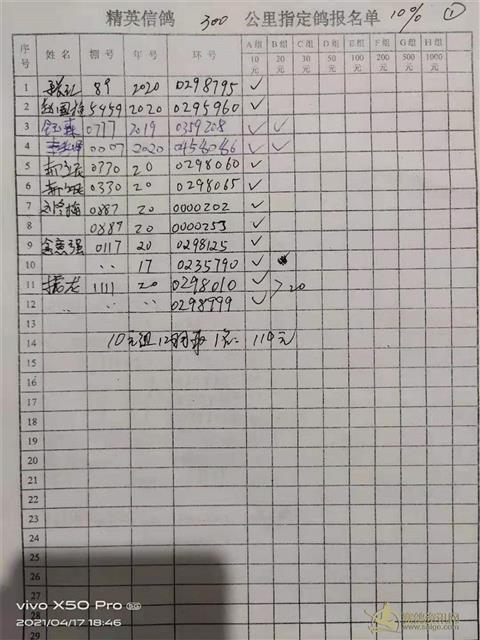 精英信鸽 300 公里指定鸽报名单 10% ①
序号 姓名 棚号 年号 环号 A组10元 B组20元 C组30元 D组50元 E组100元 F组200元 G组500元 H组1000元
1 89 2020 0298795 ✓
2 5459 2020 0295960 ✓
3 0777 2019 0359208 ✓ ✓
4 0007 2020 ✓ ✓
5 0330 20 0298060 ✓
6 0330 20 0298065 ✓
7 0887 20 0000202 ✓
8 0887 20 0000253 ✓
9 0117 20 0298125 ✓
10 17 0235790 ✓
11 1111 20 0298010 ✓ >20
12 0298999 ✓
13
14 10元组12羽 110元
15
16
17
18
19
20
21
22
23
24
25
26
27
28
29
vivo X50 Pro 5G
2021/04/17 18:46
赛鸽资讯网
www.saige.com